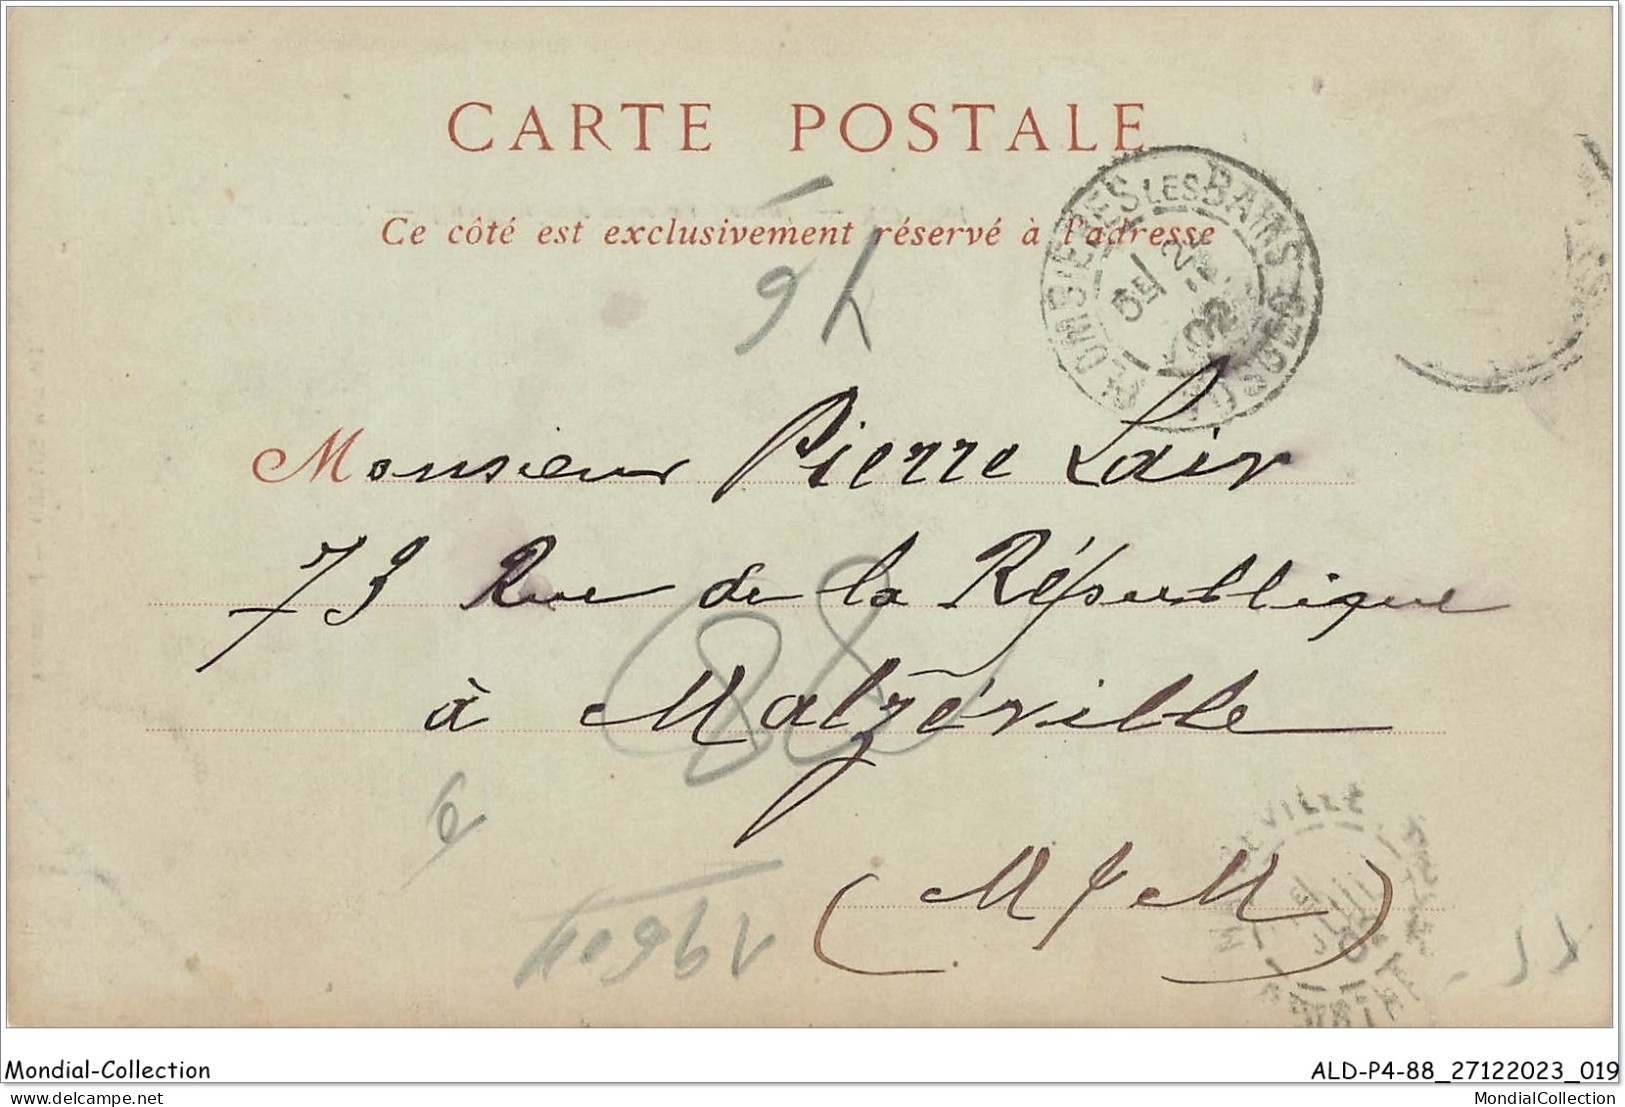 CARTE POSTALE
Ce côté est exclusivement réservé à l'adresse
PLOMBIERES LES BAINS VOSGES
02
Monsieur Pierre Lair
73 Rue de la République
à Malzéville
(M & M)
88
6
Mondial-Collection
ALD-P4-88_27122023_019
delcampe.net
MondialCollection